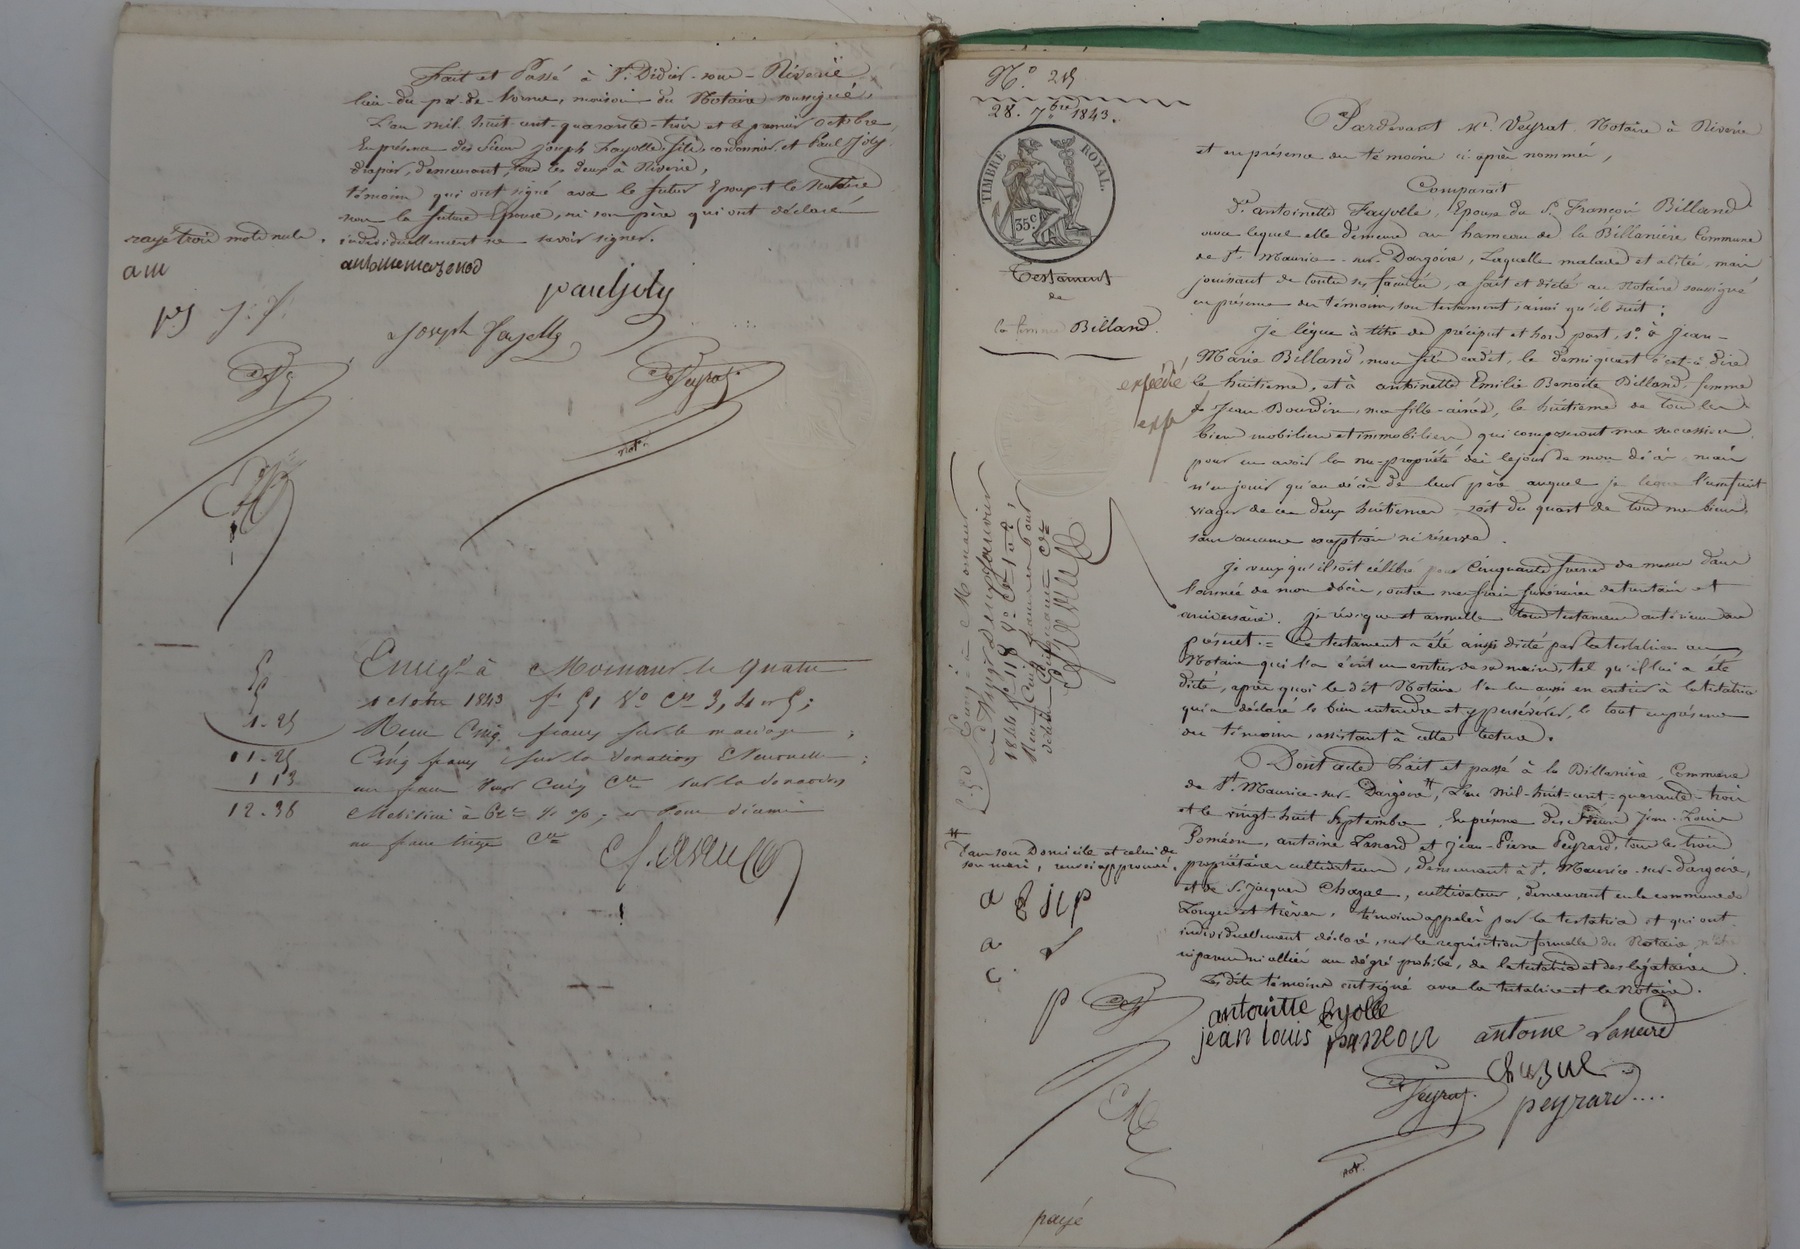 Fait et Passé à St. Didier-sous-Riverie
lieu du de maison du Notaire soussigné,
L'an mil huit cent quarante-trois et le premier octobre,
En présence des Sieurs Joseph Fayolle fils, cordonnier, et Paul Joly
drapier, demeurant, tous les deux à Riverie,
témoins qui ont signé avec le futur Epoux et le Notaire
non la future Epouse, ni son père qui ont déclaré
individuellement ne savoir signer.
rayé trois mots nuls.
am
pj j. f.
antoine mazenod
paul joly
Joseph fayolle
Veyrat
not.
Enregt. à Mornant le quatre
octobre 1843 fo 51 Vo Cse 3, 4 et 5;
Reçu Cinq francs sur le mariage;
Cinq francs sur la donation Eventuelle;
un franc vingt cinq Cmes sur la donation
Mobilière à et pour décime
un franc treize Cmes
5
5
1.25
11.25
1 13
12.38
No. 215
28. 7bre 1843.
TIMBRE ROYAL.
35 c.
Testament
de
la femme Billand.
expédié
exp
Pardevant Me. Veyrat Notaire à Riverie
et en présence des témoins ci-après nommés,
Comparait
De. antoinette Fayolle, Epouse du Sr. François Billand
avec lequel elle demeure au hameau de la Billanière, Commune
de St. Maurice-sur-Dargoire, Laquelle malade et alitée, mais
jouissant de toutes ses facultés, a fait et dicté au Notaire soussigné
en présence des témoins, son testament ainsi qu'il suit:
Je lègue à titre de préciput et hors part, 1o. à Jean-
Marie Billand, mon fils cadet, le demi quart c'est-à-dire
le huitième, et à antoinette Emilie Benoite Billand, femme
de Jean Bourdin, ma fille ainée, le huitième de tous les
biens mobiliers et immobiliers qui composeront ma succession
pour en avoir la nue-propriété dès le jour de mon décès, mais
n'en jouir qu'au décès de leur père auquel je lègue l'usufruit
viager de ces deux huitièmes soit du quart de tous mes biens,
sans aucune exception ni réserve.
Je veux qu'il soit célébré pour Cinquante francs de messes dans
l'année de mon décès, outre mes frais funéraires de trentain et
aniversaire. Je révoque et annulle tous testamens antérieurs au
présent. Ce testament a été ainsi dicté par la testatrice au
Notaire qui l'a écrit en entier de sa main, tel qu'il lui a été
dicté, après quoi le dit Notaire l'a lu aussi en entier à la testatrice
qui a déclaré le bien entendre et y persévérer, le tout en présence
des témoins, assistant à cette lecture.
Dont acte Fait et passé à la Billanière, Commune
de St. Maurice-sur-Dargoire, L'an mil-huit-cent-quarante-trois
et le vingt-huit Septembre, En présence des Sieurs Jean-Louis
Poméon, antoine Lanard et Jean-Pierre Peyrard, tous les trois
propriétaires cultivateurs, demeurant à St. Maurice-sur-Dargoire,
et de Sr. Jacques Chazal, cultivateur, demeurant en la commune de
Longes et trèves, témoins appelés par la testatrice et qui ont
individuellement déclaré, sur la requisition formelle du Notaire, n'être
ni parens ni alliés au dégré prohibé, de la testatrice et des légataires
Les dits témoins ont signé avec la testatrice et le Notaire.
Enregt. à Mornant
le vingt deux Janvier
1844 fo 118 Vo Cse 1 et 2;
Reçu Cinq francs et pour
décime Cinquante Cmes
5-50
dans son Domicile et celui de
son mari, renvoi approuvé.
a JLP
a L
C.
P
antoinette fayolle
jean louis pomeon
antoine Lanard
chazal
Veyrat
peyrard
not.
payé